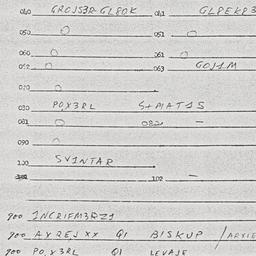 040 GROJS3R GL80K 041 GLPEKP3
050 O 051 O
060 O 061 O
062 O 063 GOJ1M
070 O
080 POY3RL S+MAT1S
081 O 082 —
090 O
100 SV1NTAR
102 —
900 INCRIFM3RZ1
900 AYREJXX Q1 BISKUP
900 POY3RL Q1 LEVAJE